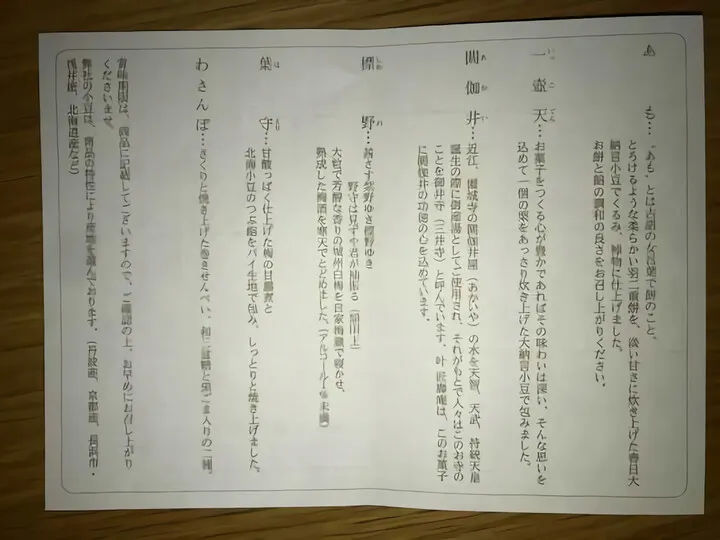 あも…“あも”とは古語の女言葉で餅のこと、
とろけるような柔らかい羽二重餅を、淡い甘さに炊き上げた春日大
納言小豆でくるみ、棹物に仕上げました。
お餅と餡の調和の良さをお召し上がりください。
一壺天…お菓子をつくる心が豊かであればその味わいは深い、そんな思いを
いっこてん
込めて一個の栗をあっさり炊き上げた大納言小豆で包みました。
閼伽井…近江、園城寺の閼伽井屋（あかいや）の水を天智、天武、持統天皇
あかい
誕生の際に御産湯としてご使用され、それがもとで人々はこのお寺の
ことを御井寺（三井寺）と呼んでいます。叶 匠壽庵は、このお菓子
に閼伽井の功徳の心を込めています。
標野…茜さす紫野ゆき標野ゆき
しめの
野守は見ずや君が袖振る（額田王）
大粒で芳醇な香りの城州白梅を自家梅蔵で寝かせ、
熟成した梅酒を寒天でとどめました。（アルコール1%未満）
葉守…甘酸っぱく仕上げた梅の甘露煮と
はもり
北海小豆のつぶ餡をパイ生地で包み、しっとりと焼き上げました。
わさんぼ…さくりと焼き上げた巻きせんべい、和三盆糖と黒ごま入りの二種。
賞味期限は、商品に記載してございますので、ご確認の上、お早めにお召し上がり
くださいませ。
弊社の小豆は、商品の特性により産地を選んでおります。（丹波産、京都産、長浜市・
浅井産、北海道産など）